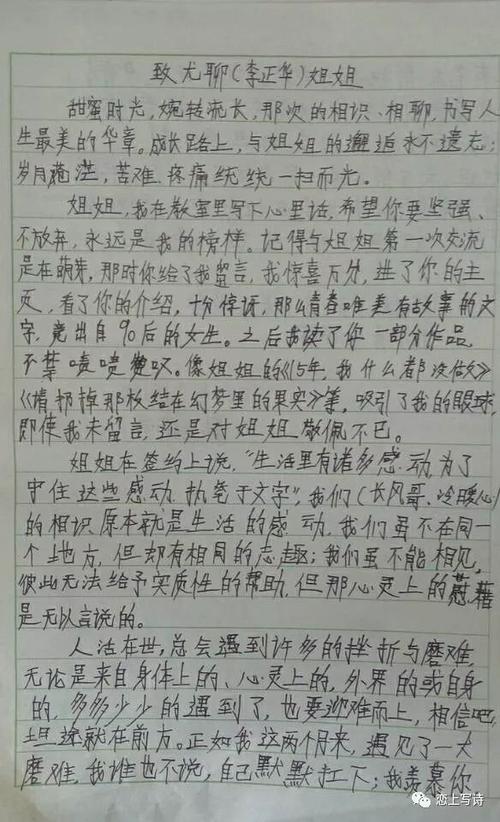 致尤聊(李正华)姐姐
甜蜜时光,婉转流长,那次的相识、相聊,书写人
生最美的华章。成长路上,与姐姐的邂逅永不遗忘;
岁月茫,苦难、疼痛统统一扫而光。
姐姐,我在教室里写下心里话,希望你要坚强、
不放弃,永远是我的榜样。记得与姐姐第一次交流
是在萌芽,那时你给了我留言,我惊喜万分,进了你的主
页,看了你的介绍,十分惊讶,那么青春唯美有故事的文
字,竟出自90后的女生。之后我读了你一部分作品,
不禁啧啧赞叹。像姐姐的《15年,我什么都没做》
《请扔掉那枚结在幻梦里的果实》等,吸引了我的眼球,
即使我未留言,还是对姐姐敬佩不已。
姐姐在签约上说,“生活里有诸多感动,为了
守住这些感动,执笔于文字”,我们(长风哥、冷暖心)
的相识原本就是生活的感动,我们虽不在同一
个地方,但却有相同的志趣;我们虽不能相见,
彼此无法给予实质性的帮助,但那心灵上的慰藉
是无以言说的。
人活在世,总会遇到许多的挫折与磨难,
无论是来自身体上的、心灵上的,外界的或自身
的,多多少少的遇到了,也要迎难而上,相信吧,
坦途就在前方。正如我这两个月来,遇见了一大
磨难,我谁也不说,自己默默扛下;我羡慕你
恋上写诗